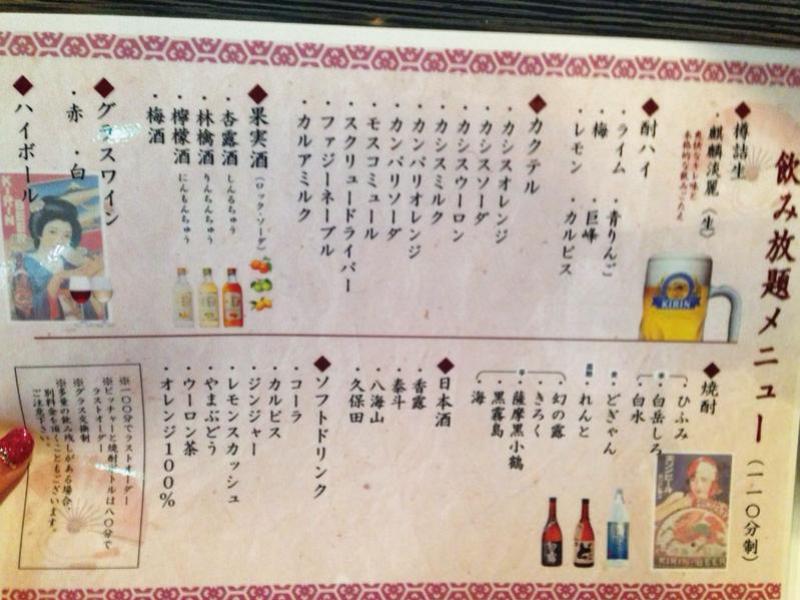 飲み放題メニュー（一一〇分制）
◆樽詰生
・麒麟淡麗〈生〉
◆酎ハイ
・ライム ・青りんご
・梅 ・巨峰
・レモン ・カルピス
◆カクテル
・カシスオレンジ
・カシスソーダ
・カシスウーロン
・カシスミルク
・カンパリオレンジ
・カンパリソーダ
・モスコミュール
・スクリュードライバー
・ファジーネーブル
・カルアミルク
◆果実酒（ロック・ソーダ）
・杏露酒 しんるちゅう
・林檎酒 りんちんちゅう
・檸檬酒 にんもんちゅう
・梅酒
◆グラスワイン
・赤 ・白
◆ハイボール
KIRIN
◆焼酎
・ひふみ
・白岳しろ
・白水
・どぎゃん
・れんと
・幻の露
・きろく
・薩摩黒小鶴
・黒霧島
・海
◆日本酒
・香露
・泰斗
・八海山
・久保田
◆ソフトドリンク
・コーラ
・カルピス
・ジンジャー
・レモンスカッシュ
・やまぶどう
・ウーロン茶
・オレンジ100％
※一〇〇分でラストオーダー
※ピッチャーと焼酎ボトルは八〇分で
ラストオーダー
※グラス交換制
※多量の飲み残しがある場合、
別料金を頂くこともございます。
ご注意下さい。